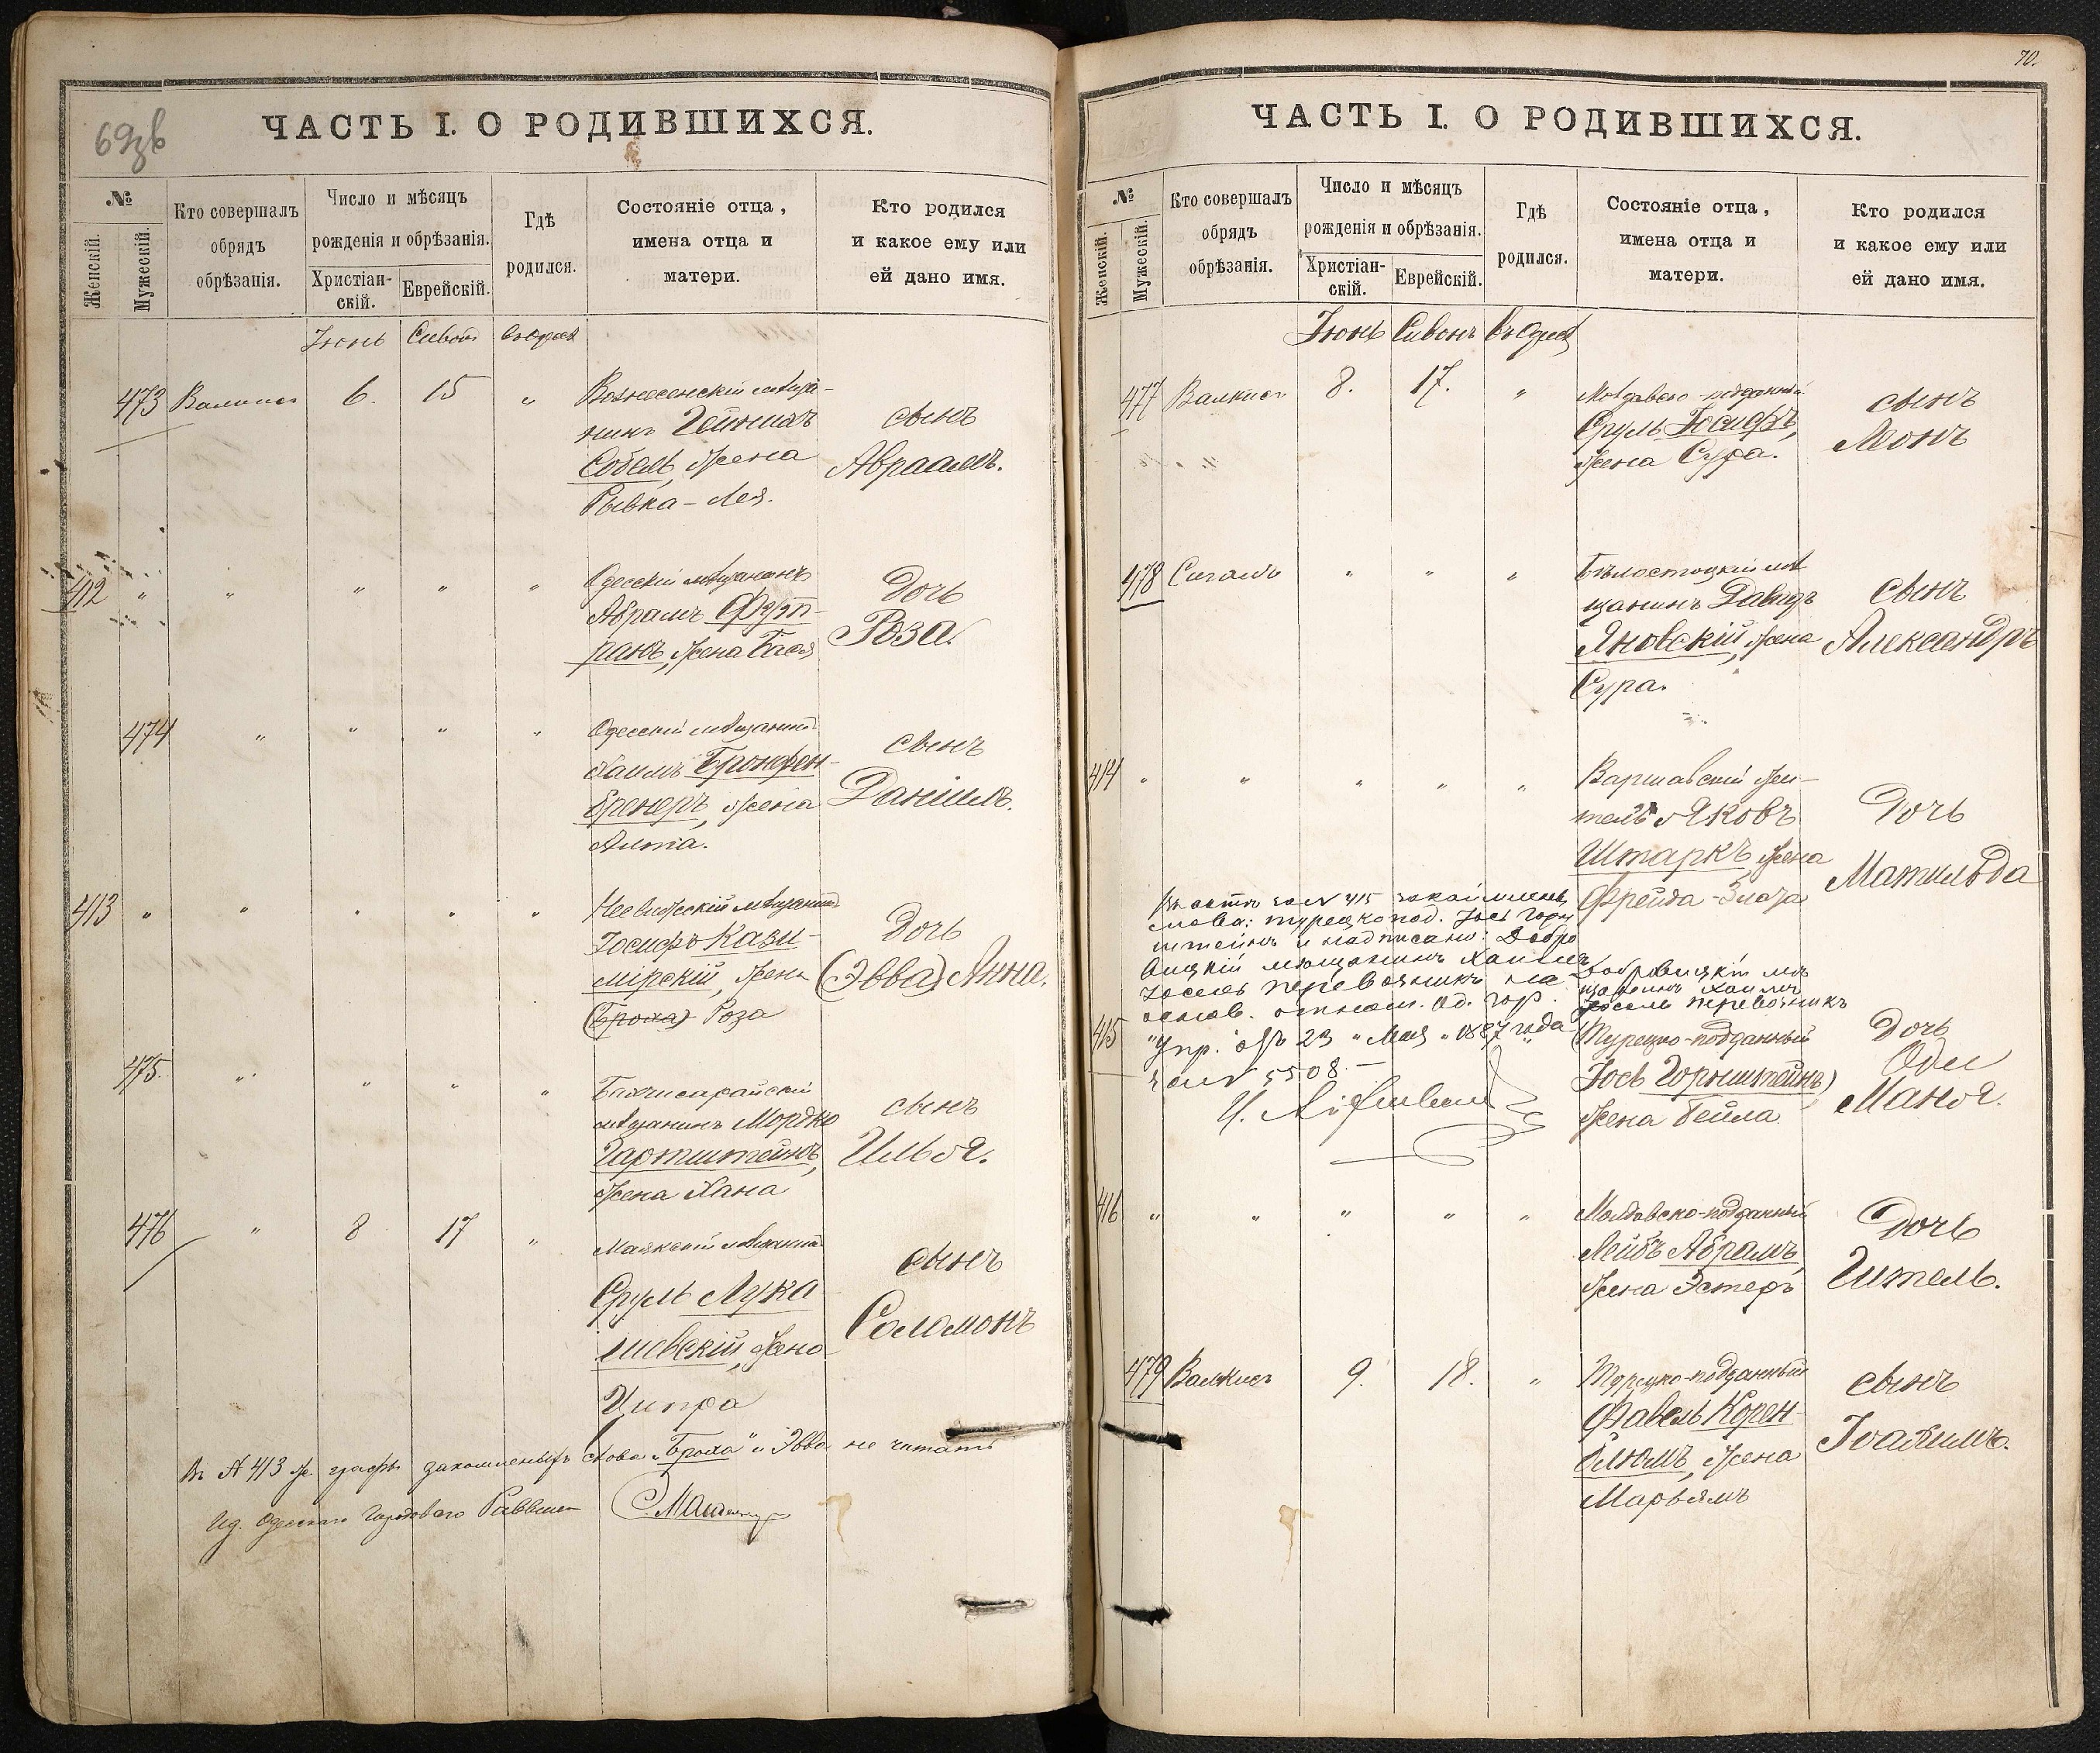 69зв
ЧАСТЬ I. О РОДИВШИХСЯ.
№
Женскій.
Мужескій.
Кто совершалъ
обрядъ
обрѣзанія.
Число и мѣсяцъ
рожденія и обрѣзанія.
Христіан-
скій.
Еврейскій.
Гдѣ
родился.
Состояніе отца,
имена отца и
матери.
Кто родился
и какое ему или
ей дано имя.
Іюнь Сивонъ
473 6. 15 "
Вознесенскій мѣща-
нинъ Гейнихъ
Собель, жена
Рывка-Лея.
сынъ
Авраамъ.
412 " " " " "
Одесскій мѣщанинъ
Абрамъ
ранъ, жена Бася
Дочь
Роза.
474 " " " "
Одесскій мѣщанинъ
Хаимъ Бронфен-
бренеръ, жена
Анна.
сынъ
Даніилъ.
413 " " " " "
мѣщанинъ
Іосифъ Кази-
мірскій, жена
(Броха) Роза
Дочь
(Эвва) Анна.
475. " " " "
Бахчисарайскій
мѣщанинъ Мордко
Гартштейнъ,
жена Хана
сынъ
Илья.
476 " 8 17 "
Маякскій мѣщанинъ
Сруль Лука
шевскій, жена
Ципра
сынъ
Соломонъ
Въ № 413 графѣ закошенныхъ слова "Броха" и Эвва не читать
Ид. Одесскаго Городового Раввина
70.
ЧАСТЬ I. О РОДИВШИХСЯ.
№
Женскій.
Мужескій.
Кто совершалъ
обрядъ
обрѣзанія.
Число и мѣсяцъ
рожденія и обрѣзанія.
Христіан-
скій.
Еврейскій.
Гдѣ
родился.
Состояніе отца,
имена отца и
матери.
Кто родился
и какое ему или
ей дано имя.
Іюнь Сивонъ
477 8. 17. "
Молдавско-подданный
Сруль Іосифъ,
жена Сура.
сынъ
Леонъ
478 " " "
Бѣлостоцкій мѣ
щанинъ Давидъ
Яновскій, жена
Сура.
сынъ
Александръ
414 " " " " "
Варшавскій жи-
тель Яковъ
Штаркъ, жена
Фрейда-Злата
Дочь
Матильда
слова: турецкопод. Іось Горн
штейнъ и надписано: Добро
вицкій мѣщанинъ Хаимъ
Іосель Перевозникъ на
основ. отнош. Од. гор.
Упр. отъ 23 "Мая" 1887 года
за № 5508. —
415
Добровицкій мѣ
щанинъ Хаимъ
Іосель Перевозникъ
(Турецко-подданный
Іось Горнштейнъ)
жена Бейла
Дочь
Маня.
416 " " " " "
Молдавско-подданный
Лейбъ Абрамъ,
жена Эстеръ
Дочь
Гитель.
479 9. 18. "
Турецко-подданный
Фавель Корен-
блюмъ, жена
Марьямъ
сынъ
Іоахимъ.